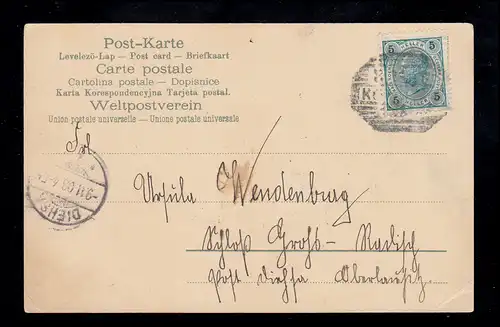 Post-Karte
Levelező-Lap — Post card — Briefkaart
Carte postale
Cartolina postale — Dopisnice
Karta Korespondencyjna Tarjeta postal.
Weltpostverein
Union postale universelle — Unione postale universale
5 5
HELLER
5 5
Frl.
Ursula Wendenburg
Schloß Groß-Radisch
Post Diehsa Oberlausitz.
DIEHSA